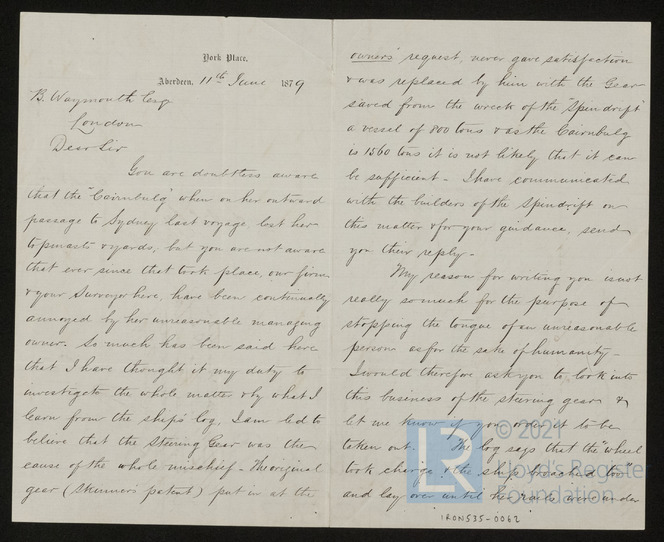 York Place,
Aberdeen, 11th June 1879
B. Waymouth Esq
London
Dear Sir
You are doubtless aware
that the "Cairnbulg" when on her outward
passage to Sydney last voyage, lost her
topmasts & yards, but you are not aware
that ever since that took place, our firm
& your Surveyor here, have been continually
annoyed by her unreasonable managing
owner. So much has been said here
that I have thought it my duty to
investigate the whole matter & by what I
learn from the ship's log, I am led to
believe that the Steering Gear was the
cause of the whole mischief - The original
gear (Skinners patent) put in at the
owners' request, never gave satisfaction
& was replaced by him with the Gear
saved from the wreck of the "Spindrift"
a vessel of 800 tons & as the Cairnbulg
is 1560 tons it is not likely that it can
be sufficient - I have communicated
with the builders of the Spindrift on
this matter & for your guidance, send
you their reply -
My reason for writing you is not
really so much for the purpose of
stopping the tongue of an unreasonable
person as for the sake of humanity -
I would therefore ask you to look into
this business of the steering gear &
let me know if you order it to be
taken out. The log says that the "wheel
took charge & the ship broached to"
and lay over until her rails were under
© 2021
Lloyd's Register
Foundation
IRON535-0062